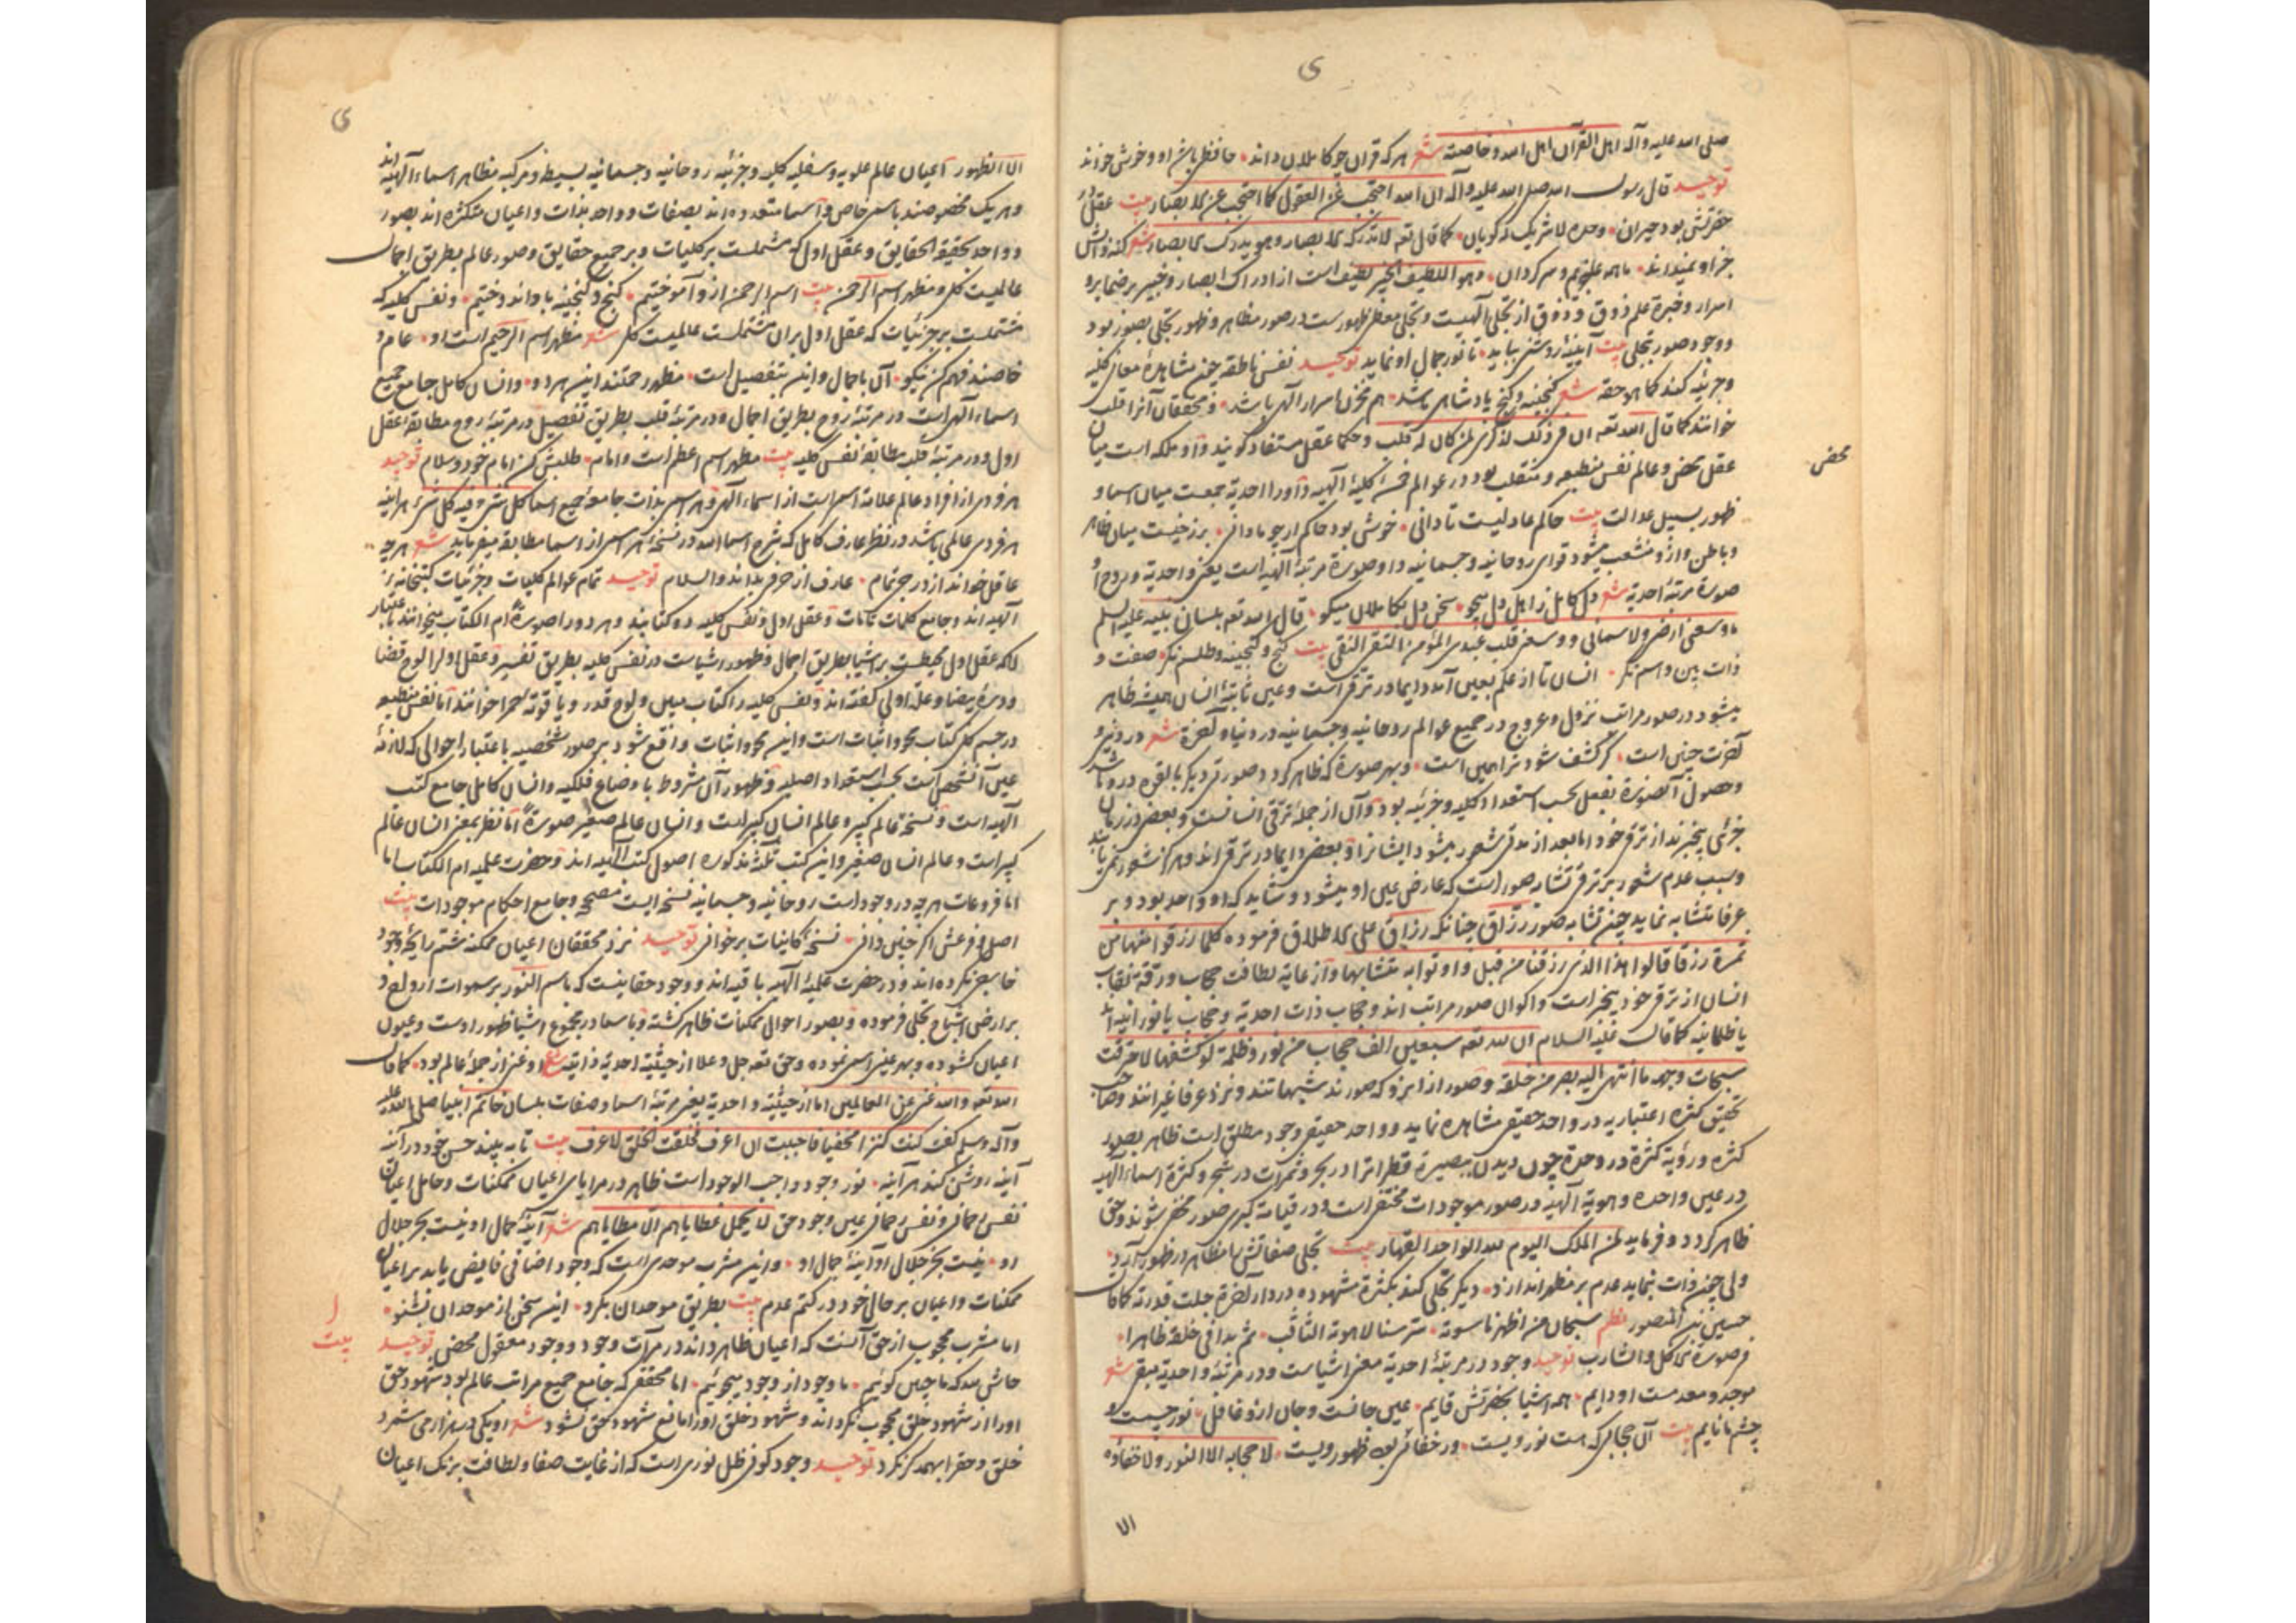 صلی الله علیه وآله اهل القرآن اهل الله وخاصته شعر هرکه قرآن چو کاملان داند حافظ باشد او و خوش خواند
توحید قال رسول الله صلی الله علیه وآله ان الله احتجب عن العقول کما احتجب عن الابصار بیت عقل
حضرتش بود حیران وحده لا شریک له گویان کما قال تعه لا تدرکه الابصار وهو یدرک الابصار شعر کنه ذاتش
جز او نمیداند ما همه عاجزیم و سرگردان وهو اللطیف الخبیر لطیف است از ادراک ابصار وخبیر بر ضمایر و
اسرار وخبرة علم ذوق و ذوق از تجلی الهیست وتجلی معطی ظهورست در صور مظاهر وظهور تجلی بصور بود
و وجود صور تجلی بیت آیینهٔ روشنی بباید تا نور جمال او نماید توحید نفس ناطقه چون مشاهدهٔ معانی کلیه
وجزئیه کند کما هو حقه شعر گنجینه و گنج پادشاهی باشد هم مخزن اسرار الهی باشد ومحققان آنرا قلب
خوانند کما قال الله تعه ان فی ذلک لذکری لمن کان له قلب وحکما عقل مستفاد گویند و او ملکه است میان
عقل محض وعالم نفس منطبعه ومنقلب بود در عوالم خمسهٔ کلیهٔ الهیه واو را احدیة جمعست میان اسما و
محض
ظهور بسبیل عدالت بیت حاکم عادلیست تا دانی خوش بود حاکم ار چو ما دانی برزخیست میان ظاهر
وباطن وازو منشعب میشود قوای روحانیه وجسمانیه واو صورة مرتبهٔ الهیه است یعنی واحدیة و روح او
صورة مرتبهٔ احدیة شعر دل کامل ز اهل دل میجو سخن دل بکاملان میگو قال الله تعه بلسان نبیه علیه السلم
ما وسعنی ارضی ولا سمائی و وسعنی قلب عبدی المؤمن التقی النقی بیت گنج و گنجینه وطلسم نگر صفت و
ذات بین و اسم نگر انسان تا از علم بعین آمد دایما در ترقی است وعین ثابتهٔ انسان همیشه ظاهر
میشود در صور مراتب نزول وعروج در جمیع عوالم روحانیه وجسمانیه در دنیا و آخرة شعر در دنیی و
آخرت چنین است گر کشف شود ترا همین است وبهر صورة که ظاهر گردد صورتی دیگر بالقوه درو باشد
وحصول آنصورة بفعل بحسب استعداد کلیه وجزئیه بود وآن از جمله ترقی انسانست وبعضی در زمان
جزئی بیخبرند از ترقی خود اما بعد از مدتی شعور میشود ایشانرا وبعضی دایما در ترقی اند وهرگز شعور نمی یابند
وسبب عدم شعور بر ترقی تشابه صور است که عارض عین او میشود وشاید که او واحد بود وبر
عرفا متشابه نماید چون تشابه صور رزاق چنانکه رزاق علی الاطلاق فرموده کلما رزقوا منها من
ثمرة رزقا قالوا هذا الذی رزقنا من قبل واوتوا به متشابها واز غایة لطافت حجاب ورقة نقاب
انسان از ترقی خود بیخبر است واکوان صور مراتب اند وحجاب ذات احدیة وحجاب یا نورانیه اند
یا ظلمانیه کما قال علیه السلام ان لله تعه سبعین الف حجاب من نور وظلمة لو کشفها لاحرقت
سبحات وجهه ما انتهی الیه بصره من خلقه وصور از آنرو که صورند شبیهاتند ونزد عرفا غیرانند وصاحب
تحقیق کثرة اعتباریه در واحد حقیقی مشاهده نماید وواحد حقیقی وجود مطلق است ظاهر بصور
کثرة ورؤیة کثرة در وحدة چون دیدن بصیرة قطراترا در بحر وثمرات در شجر وکثرة اسماء الهیه
در عین واحده وهویة الهیه در صور موجودات مختفی است ودر قیامة کبری صور مختفی شوند وحق
ظاهر گردد وفرماید لمن الملک الیوم لله الواحد القهار بیت تجلی صفاتش با مظاهر در ظهور آرد
ولی چون ذات بنماید عدم بر مظهر اندازد دیگر تجلی کند بکثرة مشهوده در دار آخرة جلت قدرته کما قال
حسین بن المنصور نظم سبحان من اظهر ناسوته سر سنا لاهوته الثاقب ثم بدا فی خلقه ظاهرا
فی صورة الاکل والشارب توحید وجود در مرتبهٔ احدیة معنی اشیاست ودر مرتبهٔ واحدیة مبقی شعر
موجد و معدمست او دایم همه اشیا بحضرتش قایم عین جانست وجان ازو غافل نور چشمست و
چشم ما نایم بیت آن حجابی که هست نور ویست ور خفائی بود ظهور ویست لا حجابه الا النور ولا خفاؤه
الا
الا الظهور اعیان عالم علویه وسفلیه کلیه وجزئیه روحانیه وجسمانیه بسیطه ومرکبه مظاهر اسماء الهیه اند
وهر یک مخصوصند باسمی خاص واسما متعدده اند بصفات و واحد بذات واعیان متکثره اند بصور
و واحد بحقیقة الحقایق وعقل اول که مشتملست بر کلیات وبر جمیع حقایق وصور عالم بطریق اجمال
عالمیست کلی ومظهر اسم الرحمن بیت اسم الرحمن ازو آموختیم گنج و گنجینه با و اندوختیم ونفس کلیه که
مشتملست بر جزئیات که عقل اول بران مشتملست عالمیست کلی شعر مظهر اسم الرحیم است او عام و
خاصند فهم کن نیکو آن باجمال واین بتفصیل است مظهر رحمتند این هر دو وانسان کامل جامع جمیع
اسماء الهی است در مرتبهٔ روح بطریق اجمال ودر مرتبهٔ قلب بطریق تفصیل در مرتبهٔ روح مطابقهٔ عقل
اول ودر مرتبهٔ قلب مطابقهٔ نفس کلیه بیت مظهر اسم اعظم است وامام طلبش کن امام خود وسلام توحید
هر فردی از افراد عالم علامة اسمی است از اسماء الهی وهر اسمی بذات جامعهٔ جمیع اسما کل شیء فیه کل شیء هر آینه
هر فردی عالمی باشد در نظر عارف کامل که شرح اسما الله در نسخهٔ هر اسمی از اسما مطالعه میفرماید شعر هر چه
عاقل خواند از درج تمام عارف از حرفی بداند والسلام توحید تمام عوالم کلیات وجزئیات کتبخانه
الهیه اند وجامع کلمات تامات وعقل اول ونفس کلیه دو کتابند وهر دو را صورة ام الکتاب میخوانند باعتبار
آنکه عقل اول محیطست بر اشیا بطریق اجمال وظهور اشیاست در نفس کلیه بطریق تفسیر وعقل اول را لوح قضا
ودرهٔ بیضا وعلة اولی گفته اند ونفس کلیه را کتاب مبین ولوح قدر ویاقوتهٔ حمرا خوانند اما نفس منطبعه
در جسم کلی کتاب محو واثبات است واین محو واثبات واقع شود بر صور شخصیه باعتبار احوالی که لازمهٔ
عین آنشخص است بحسب استعداد اصلیه وظهور آن مشروط باوضاع فلکیه وانسان کامل جامع کتب
الهیه است ونسخه عالم کبیر وعالم انسان کبیر است وانسان عالم صغیر صورة اما نظر بمعنی انسان عالم
کبیر است وعالم انسان صغیر واین کتب ثلثه مذکوره اصول کتب الهیه اند وحضرت علمیه ام الکتاب اما
اما فروعات هر چه در وجود است روحانیه وجسمانیه نسخه ایست مصححه وجامع احکام موجودات بیت
اصل و فرعش اگر چنین دانی نسخهٔ کاینات بر خوانی توحید نزد محققان اعیان ممکنه شتم رایحهٔ وجود
خارجی نکرده اند ودر حضرت علمیهٔ الهیه باقیه اند و وجود حقانیست که باسم النور بر سموات ارواح و
بر اراضی اشباح تجلی فرموده وبصور احوال ممکنات ظاهر گشته وباسما در مجموع اشیا ظهور اوست وعیون
اعیان گشوده وبهر عین اسمی نموده وحق تعه جل وعلا از حیثیة احدیة ذاتیه شعر او غنی از جملهٔ عالم بود کما قال
الله تعه والله غنی عن العالمین اما از حیثیة واحدیة یعنی مرتبهٔ اسما وصفات بلسان خاتم انبیا صلی الله علیه
وآله وسلم گفت کنت کنزا مخفیا فاحببت ان اعرف فخلقت الخلق لاعرف بیت تا به بیند حسن خود در آینه
آینه روشن کند هر آینه نور وجود واجب الوجود است ظاهر در مرایای اعیان ممکنات وحامل اعیان
نفس رحمانی ونفس رحمانی عین وجود حق لا یحمل عطایاهم الا مطایاهم شعر آینهٔ جمال او نیست بجز جلال
او نیست بجز جلال او آینهٔ جمال او واین مشرب موحدی است که وجود اضافی فایض یابد بر اعیان
ممکنات واعیان بر حال خود در کتم عدم بیت بطریق موحدان بگرو این سخن از موحدان بشنو
اما مشرب محجوب از حق آنست که اعیان ظاهر داند در مرآت وجود و وجود معقول محض توحید
بیت
حاش لله که ما چنین گوئیم ما وجود از وجود میجوئیم اما محقق که جامع جمیع مراتب عالم بود شهود حق
او را از شهود خلق محجوب نگرداند وشهود خلق او را مانع شهود حق نشود شعر او یکی در هزار می شمرد
خلق و حق را بهمدگر نگرد توحید وجود کونی ظل نوری است که از غایت صفا ولطافت برنگ اعیان